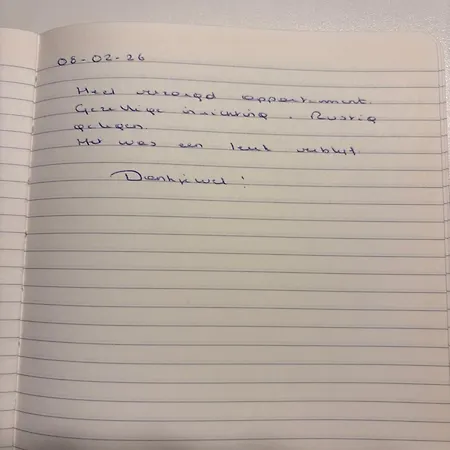 08-02-26
Heel verzorgd appartement.
Gezellige inrichting. Rustig
gelegen.
Het was een leuk verblijf.
Dankjewel!